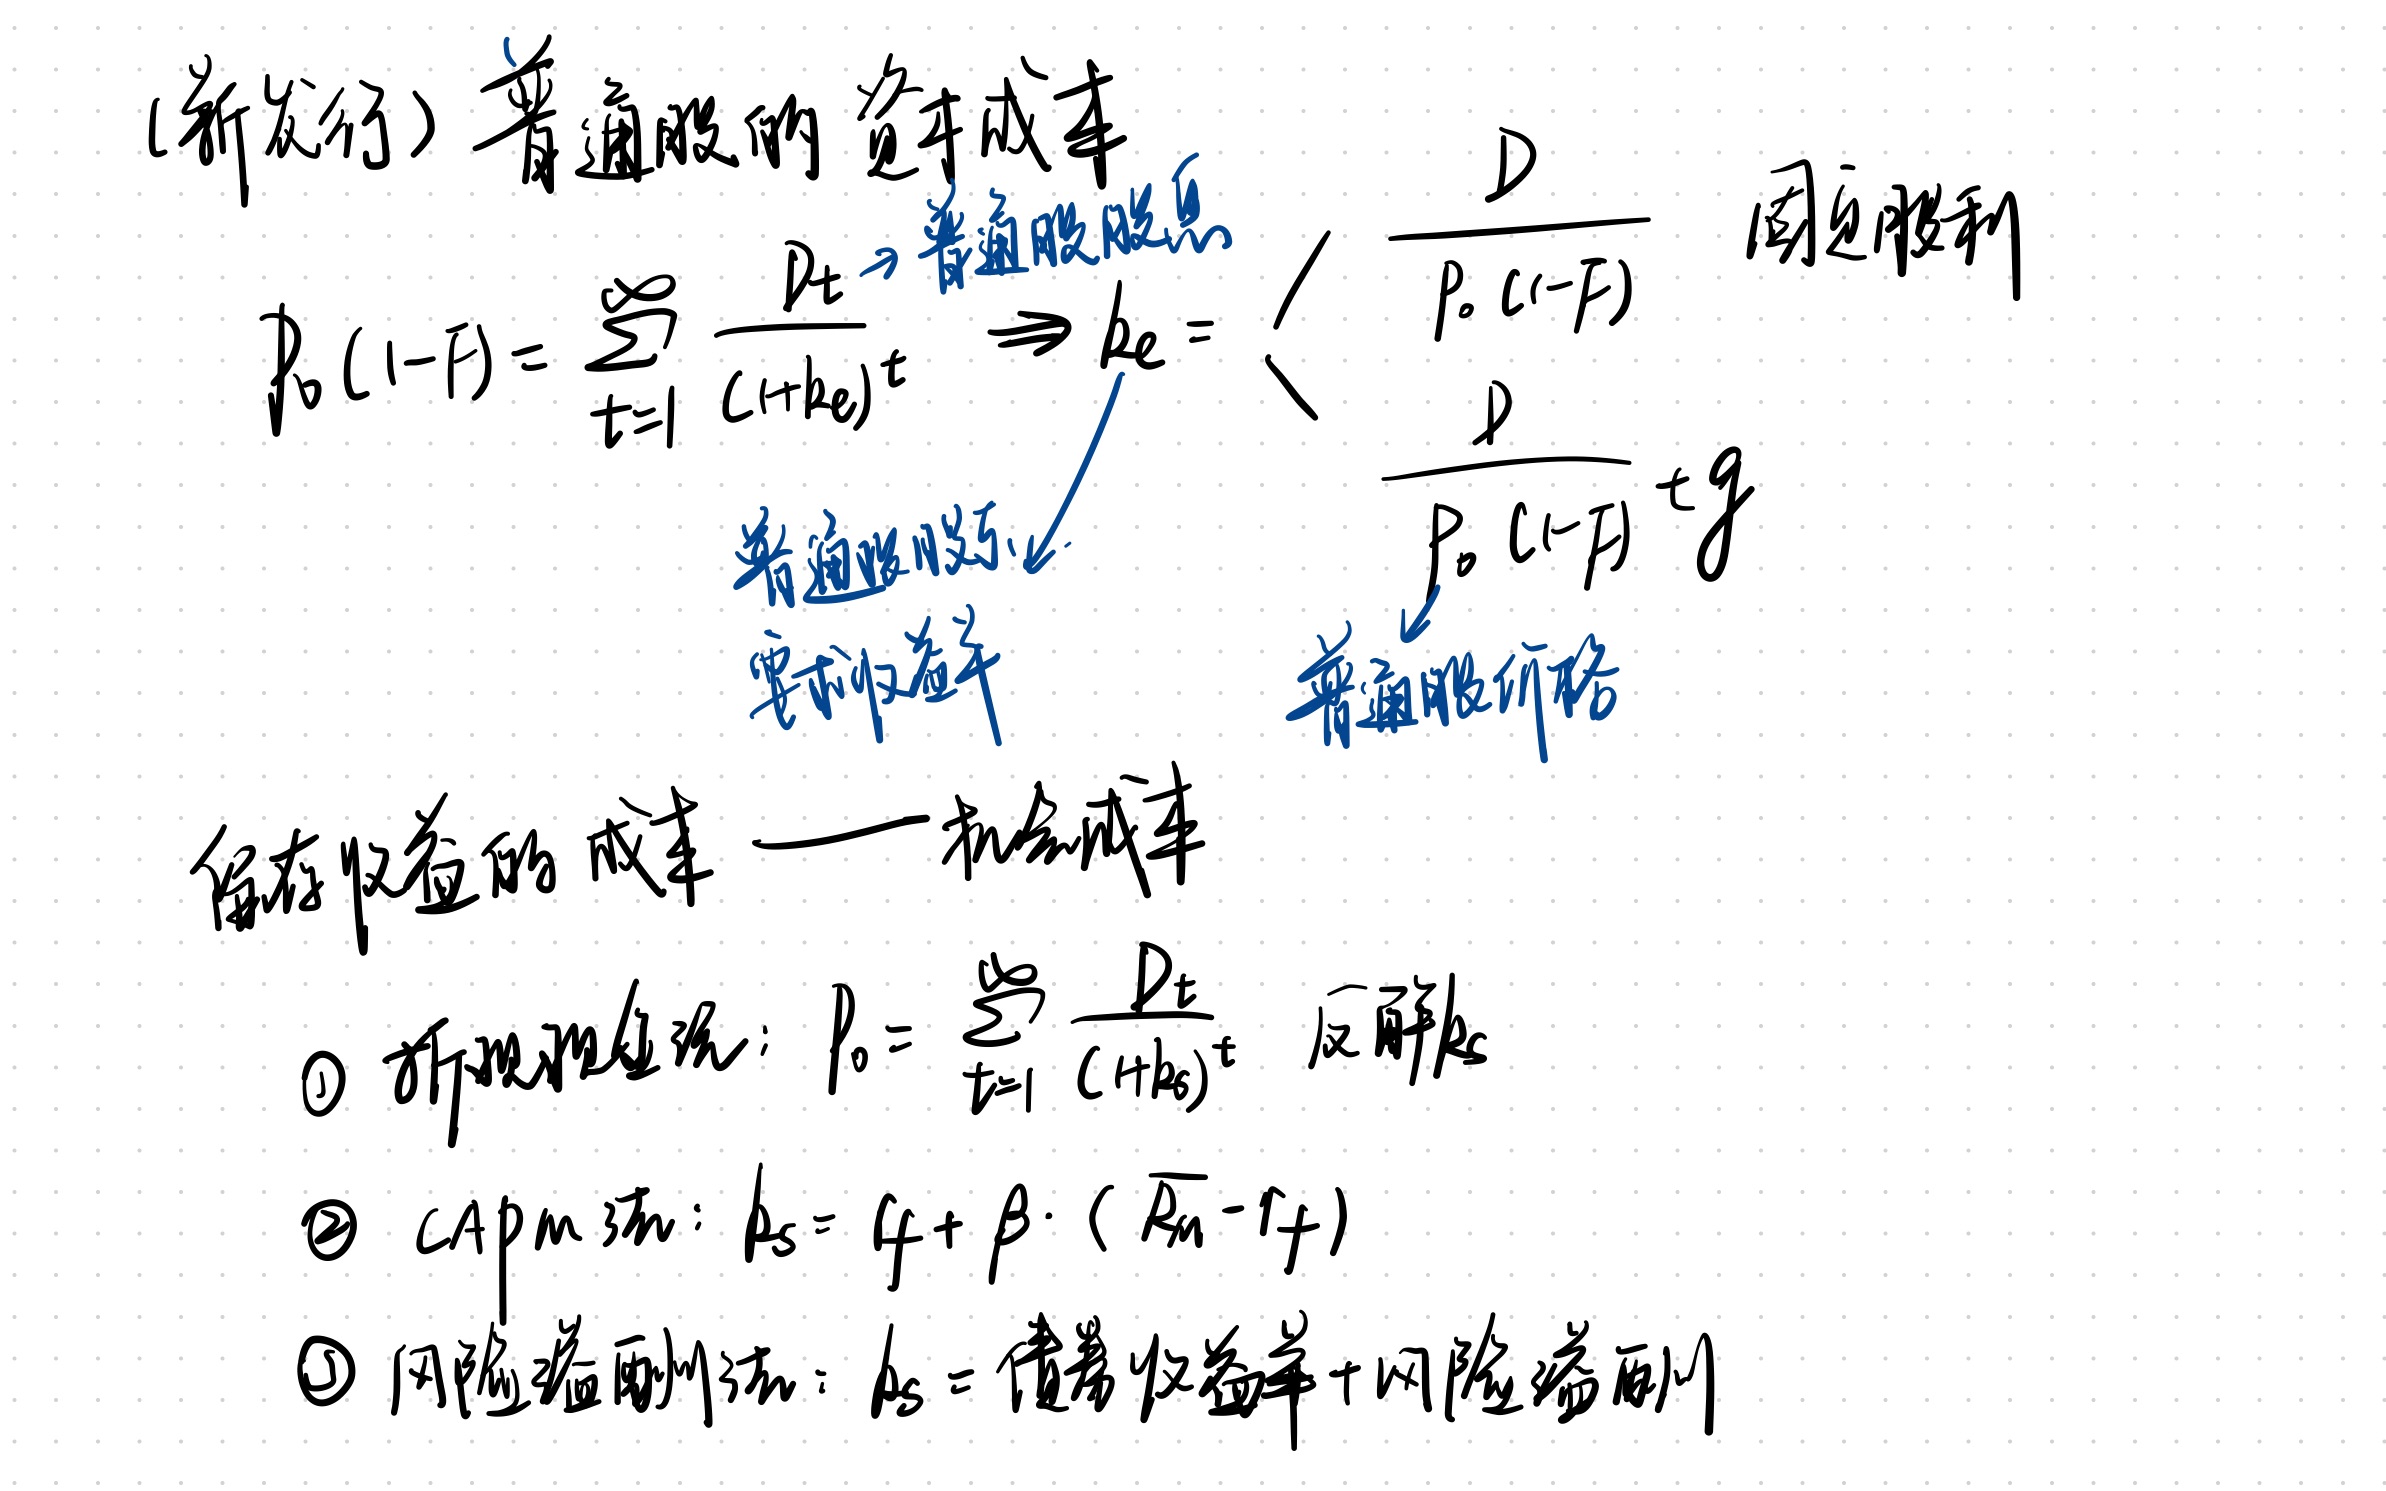 (新发行) 普通股的资本成本
P₀(1-F) = ∑_{t=1}^{∞} Dt/(1+ke)^t ⇒ ke =
→ 普通股股息
D/P₀(1-F) 固定股利
D/P₀(1-F) + g
普通股股东
要求收益率
普通股价格
留存收益的成本 —— 机会成本
① 折现现金流: P₀ = ∑_{t=1}^{∞} Dt/(1+ks)^t 反解ks
② CAPM法: ks = rf + β·(R̄m - rf)
③ 风险溢酬法: ks = 债券收益率 + 风险溢酬